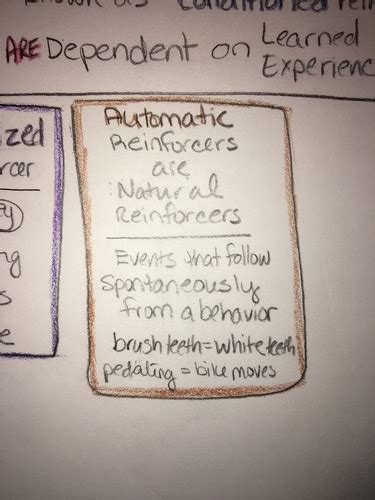 Known as Conditioned rein
ARE Dependent on Learned
Experienc
ized
rcer
ey
ng
s
e
Automatic
Reinforcers
are
Natural
Reinforcers
Events that follow
Spontaneously
from a behavior
brush teeth = white teeth
pedaling = bike moves